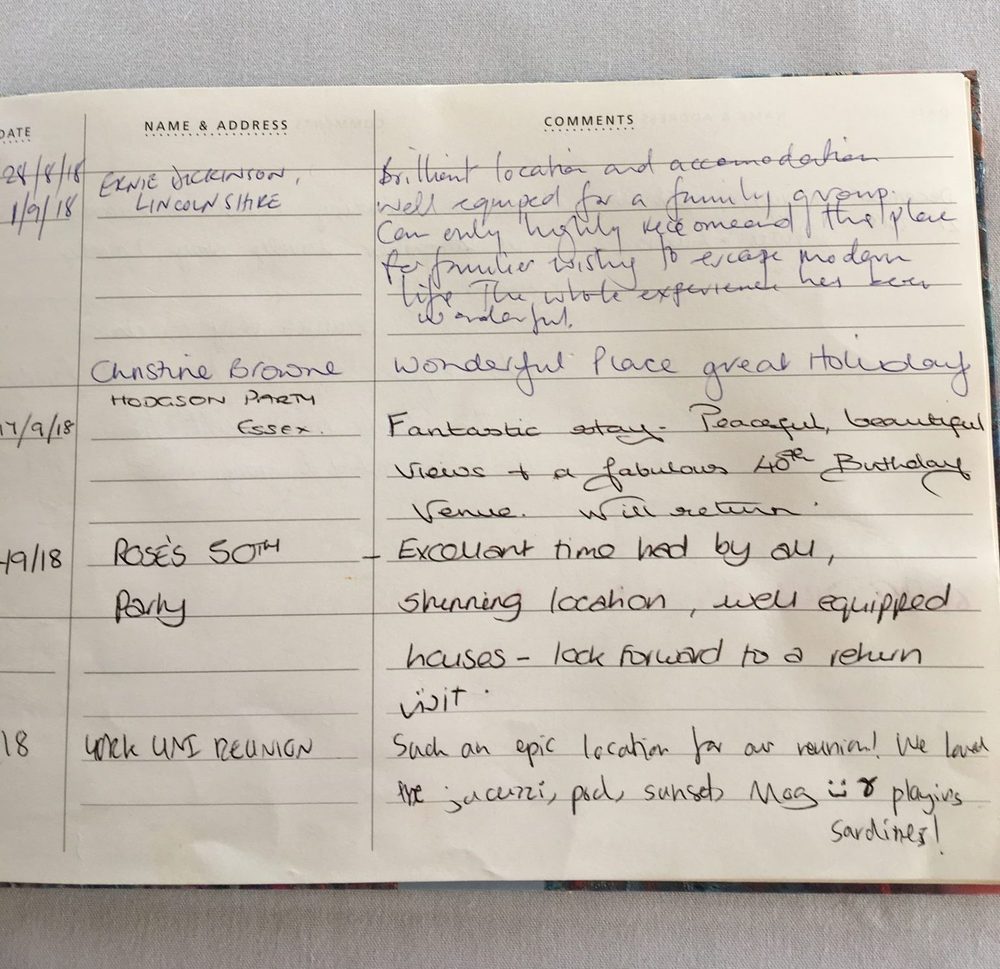 DATE NAME & ADDRESS COMMENTS
28/8/18 ERNIE DICKINSON, Brillient location and accomodation
1/9/18 LINCOLNSHIRE Well equiped for a family group.
Can only highly reccomeand this place
for familier wishing to escape modern
life The whole experience has been
wonderful.
Christine Browne Wonderful Place great Holiday
HODGSON PARTY
17/9/18 ESSEX. Fantastic stay - Peaceful, beautiful
views + a fabulous 40th Birthday
Venue. Will return.
/9/18 ROSE'S 50TH - Excellent time had by all,
Party stunning location, well equipped
houses - look forward to a return
visit.
18 YORK UNI REUNION Such an epic location for our reunion! We loved
the jacuzzi, pool, sunset, Mog & playing
sardines!